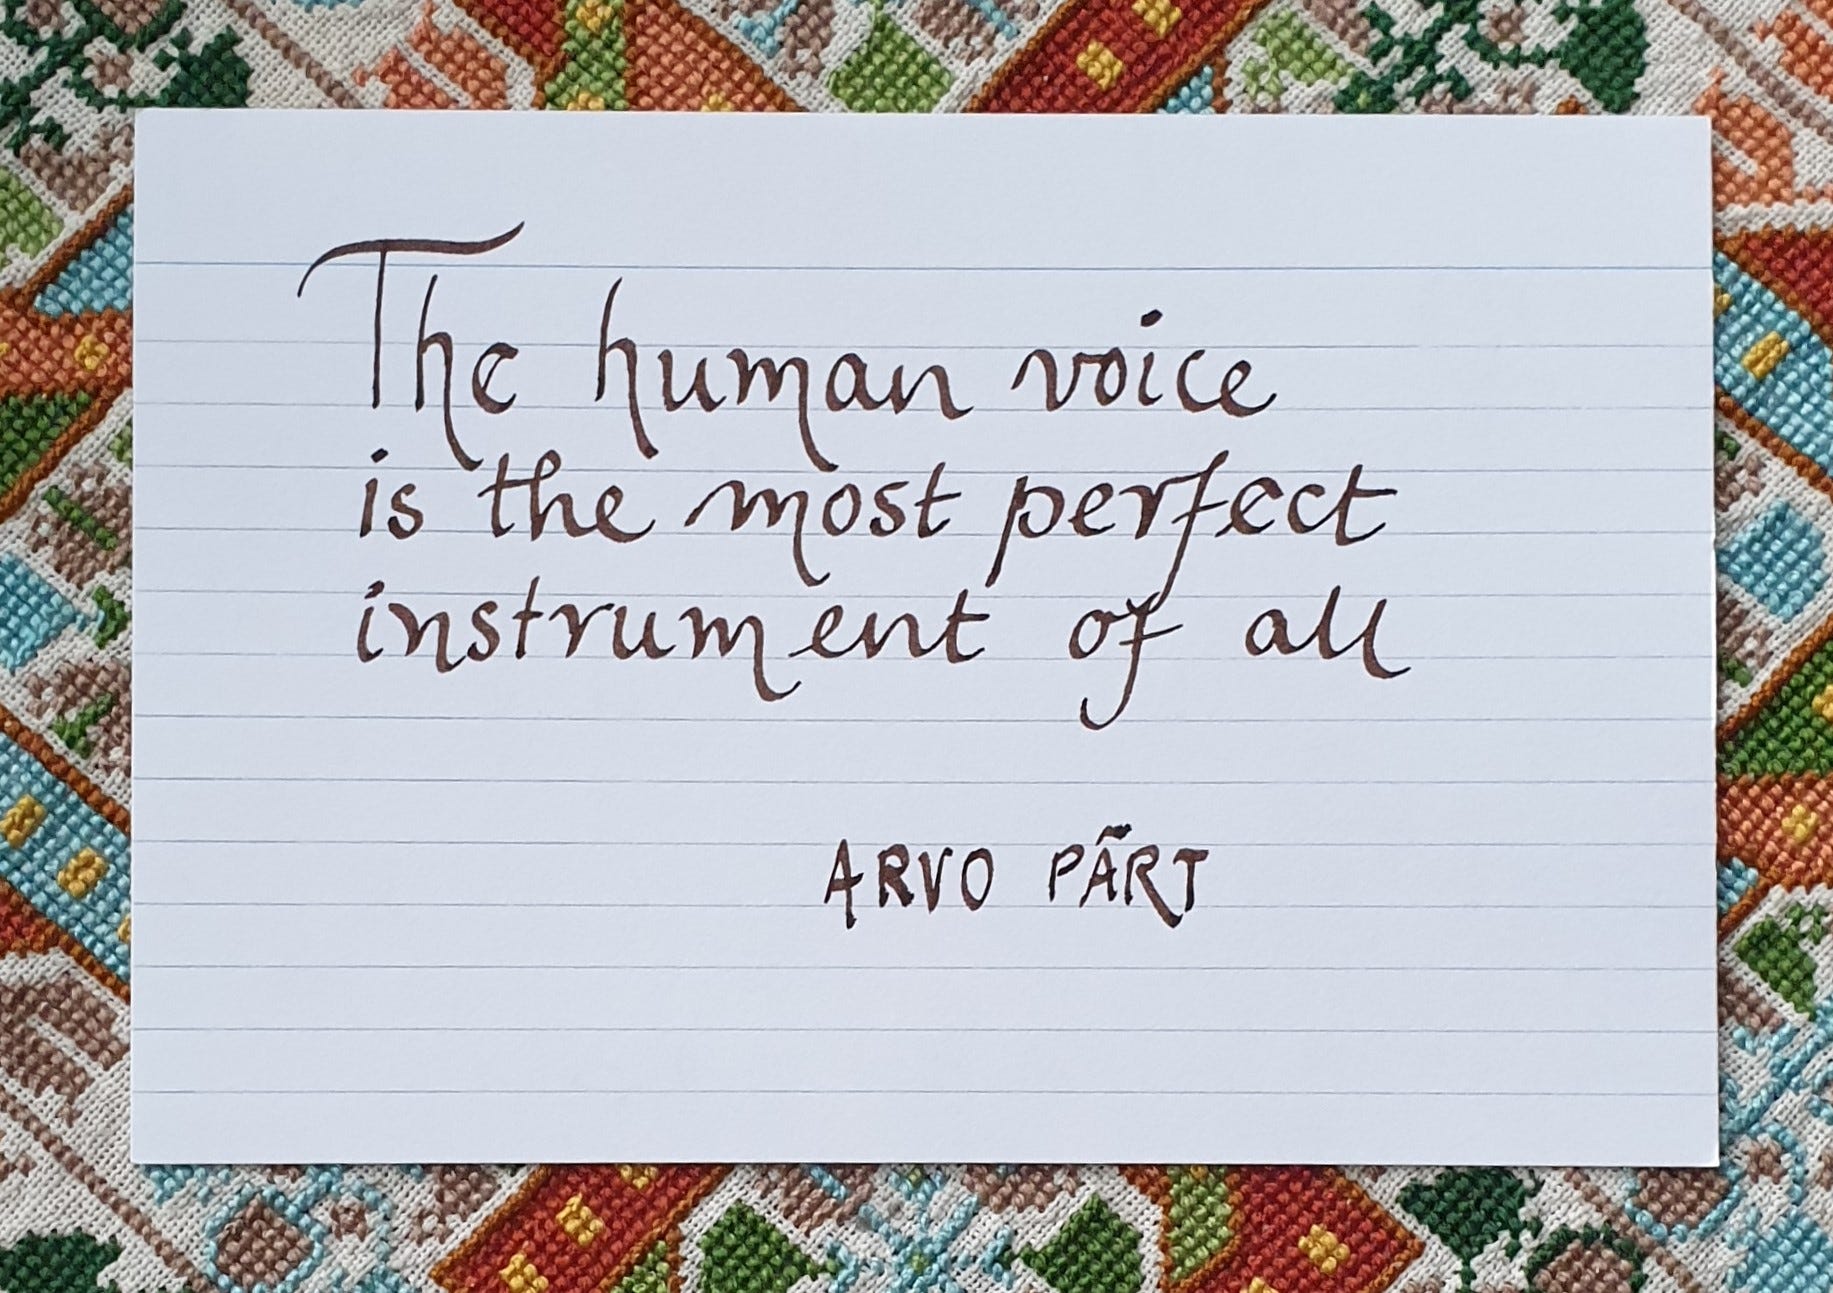 The human voice
is the most perfect
instrument of all
ARVO PÄRT